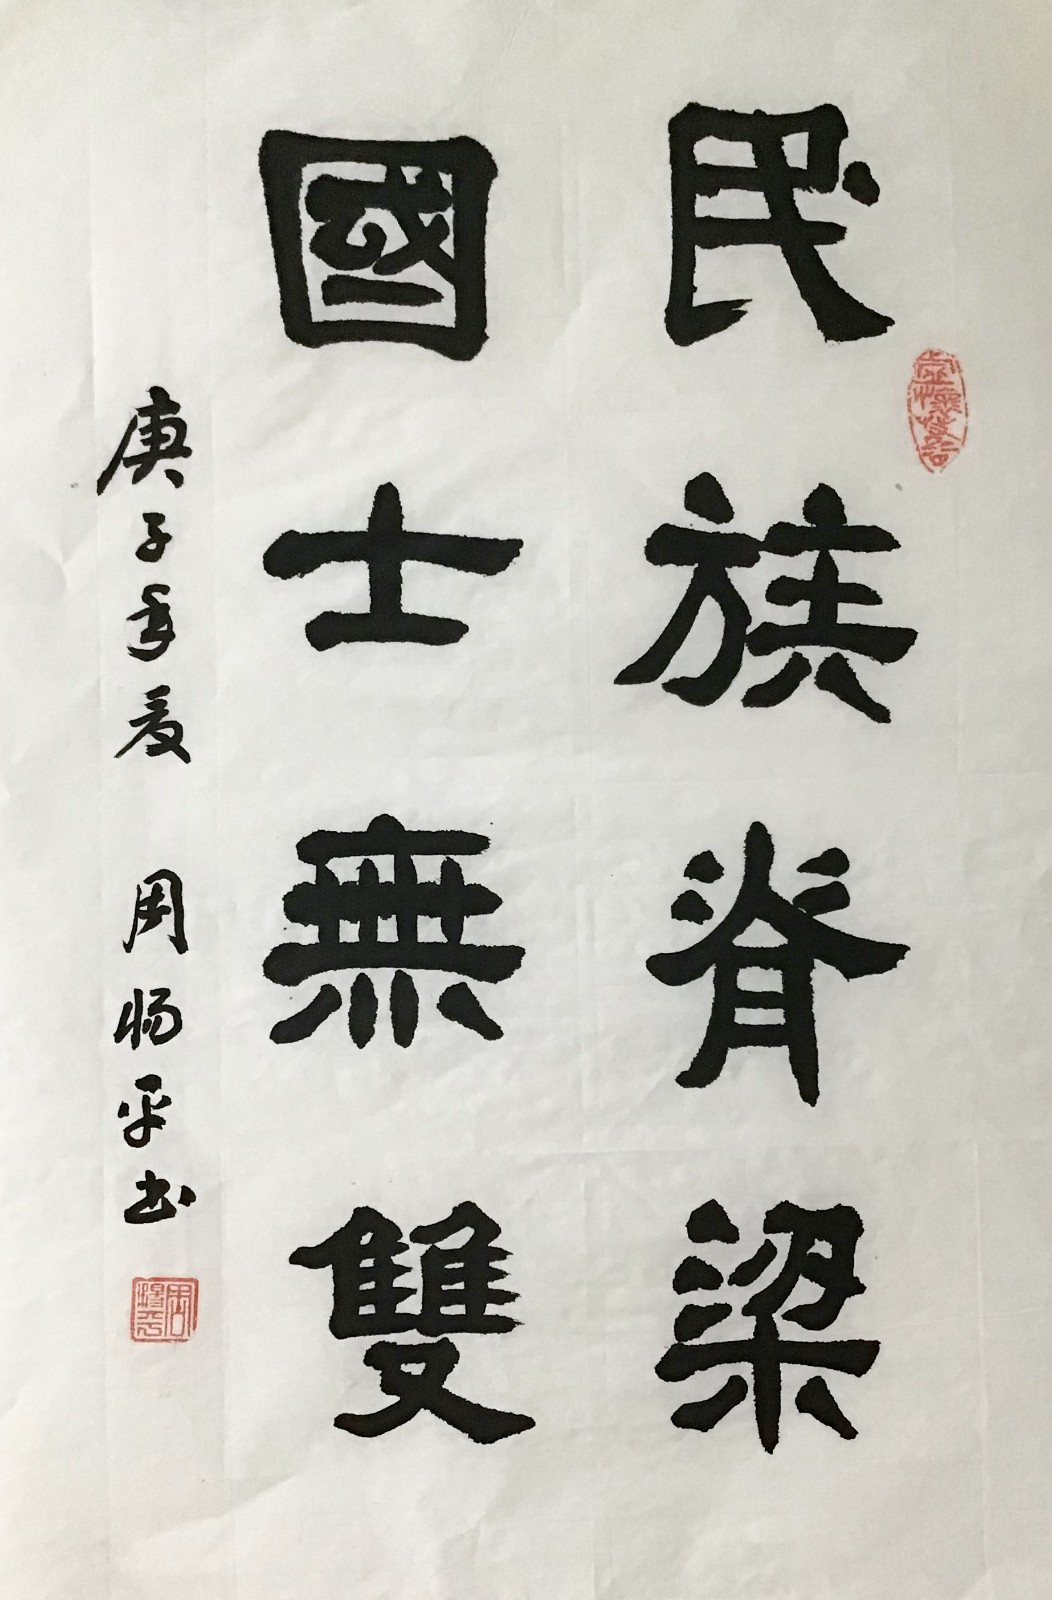 民族脊梁
國士無雙
庚子年夏 周畅平书